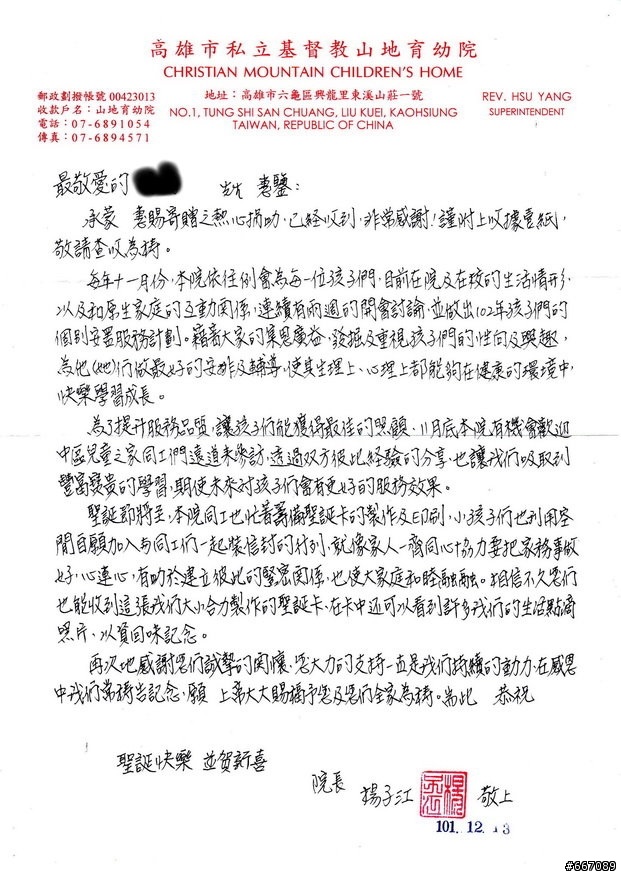 高雄市私立基督教山地育幼院
CHRISTIAN MOUNTAIN CHILDREN'S HOME
郵政劃撥帳號 00423013
收款戶名：山地育幼院
電話：07-6891054
傳真：07-6894571
地址：高雄市六龜區興龍里東溪山莊一號
NO.1, TUNG SHI SAN CHUANG, LIU KUEI, KAOHSIUNG
TAIWAN, REPUBLIC OF CHINA
REV. HSU YANG
SUPERINTENDENT
最敬愛的 先生 惠鑒：
承蒙 惠賜寄贈之熱心捐助，已經收到，非常感謝！謹附上收據壹紙，
敬請查收為禱。
每年十一月份，本院依往例會為每一位孩子們，目前在院及在校的生活情形，
以及和原生家庭的互動關係，連續有兩週的開會討論，並做出102年孩子們的
個別安置服務計劃。藉著大家的集思廣益，發掘及重視孩子們的性向及興趣，
為他(她)們做最好的安排及輔導，使其生理上、心理上都能夠在健康的環境中，
快樂學習成長。
為了提升服務品質，讓孩子們能獲得最佳的照顧，11月底本院有機會歡迎
中區兒童之家同工們遠道來參訪，透過双方彼此經驗的分享，也讓我們吸取到
豐富寶貴的學習，期使未來對孩子們會有更好的服務效果。
聖誕即將至，本院同工也忙著籌備聖誕卡的製作及印刷，小孩子們也利用空
閒自願加入與同工們一起裝信封的行列，就像家人一齊同心協力要把家務事做
好，心連心，有助於建立彼此的緊密關係，也使大家庭和睦融融。相信不久您們
也能收到這張我們大小合力製作的聖誕卡，在卡中还可以看到許多我們的生活點滴
照片，以資回味記念。
再次地感謝您們誠摯的関懷，您大力的支持一直是我們持續的動力，在感恩
中我們常禱告記念，願 上帝大大賜福予您及您們全家為禱。耑此 恭祝
聖誕快樂 並賀新喜
院長 楊子江 敬上
101. 12. 13
#667089